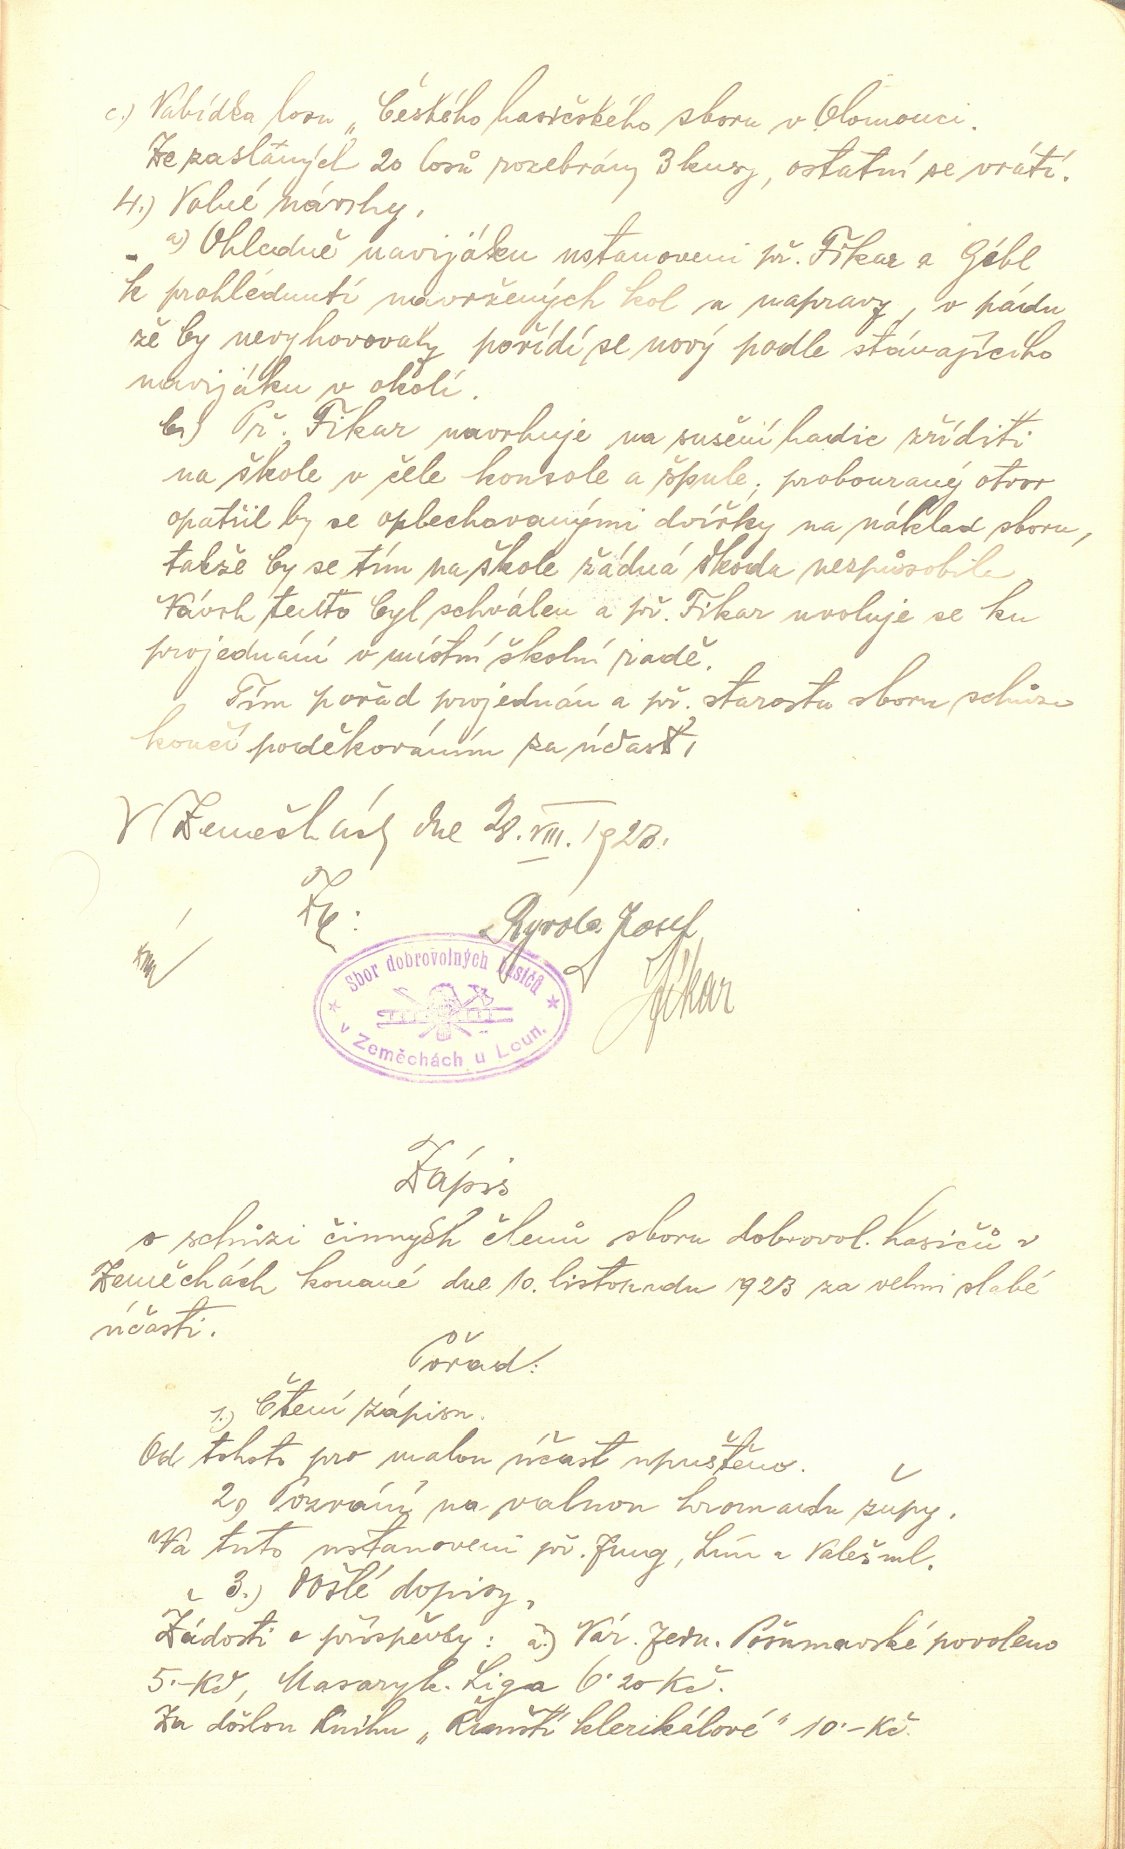 c.) Nabídka losu „Českého hasičského sboru v Olomouci.
Ze zaslaných 20 losů rozebrány 3 kusy, ostatní se vrátí.
4.) Volné návrhy.
a) Ohledně navijáku ustanoveni př. Fikar a Göbl
k prohlédnutí navržených kol a nápravy, v pádu
že by nevyhovovaly pořídí se nový podle stávajícího
navijáku v okolí.
b.) Př. Fikar navrhuje na sušení hadic zříditi
na škole v čele konsole a špule; probouraný otvor
opatřil by se oplechovanými dvířky na náklad sboru,
takže by se tím na škole žádná škoda nezpůsobila
Návrh tento byl schválen a př. Fikar uvoluje se ku
projednání v místní školní radě.
Tím pořad projednán a př. starosta sboru schůzi
končí poděkováním za účast.
V Zeměchách dne 28. VIII. 1923.
Zp:
Ryvola Josef
Fikar
Sbor dobrovolných hasičů
v Zeměchách u Loun.
Zápis
o schůzi činných členů sboru dobrovol. hasičů v
Zeměchách konané dne 10. listopadu 1923 za velmi slabé
účasti.
Pořad:
1.) Čtení zápisu.
Od tohoto pro malou účast upuštěno.
2) Pozvání na valnou hromadu župy.
Na tuto ustanoveni př. Jung, Lím a Valeš ml.
3.) Došlé dopisy.
Žádosti o příspěvky: a.) Nár. Jedn. Pošumavské povoleno
5.-Kč, Masaryk. Liga 6.20 Kč.
Za došlou knihu „Římští klerikálové" 10.-Kč.